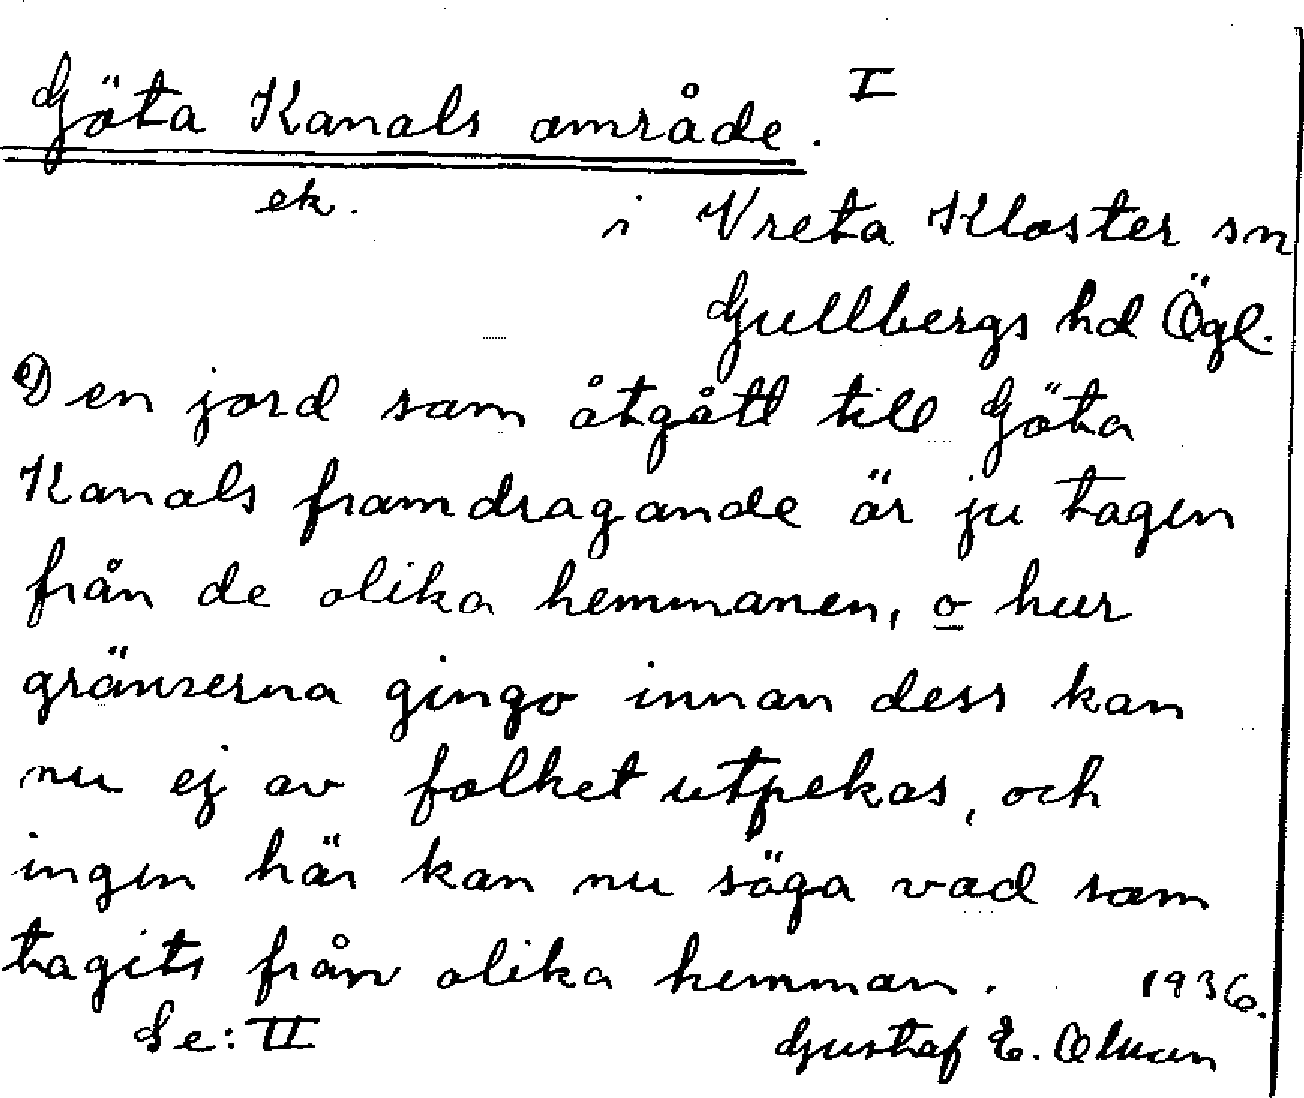 Göta Kanals område. I
ek.
i Vreta Kloster sn
Gullbergs hd Ögl.
Den jord som åtgått till Göta
Kanals framdragande är ju tagen
från de olika hemmanen, o hur
gränserna gingo innan dess kan
nu ej av folket utpekas, och
ingen här kan nu säga vad som
tagits från olika hemman. 1936.
Se: II
Gustaf E.